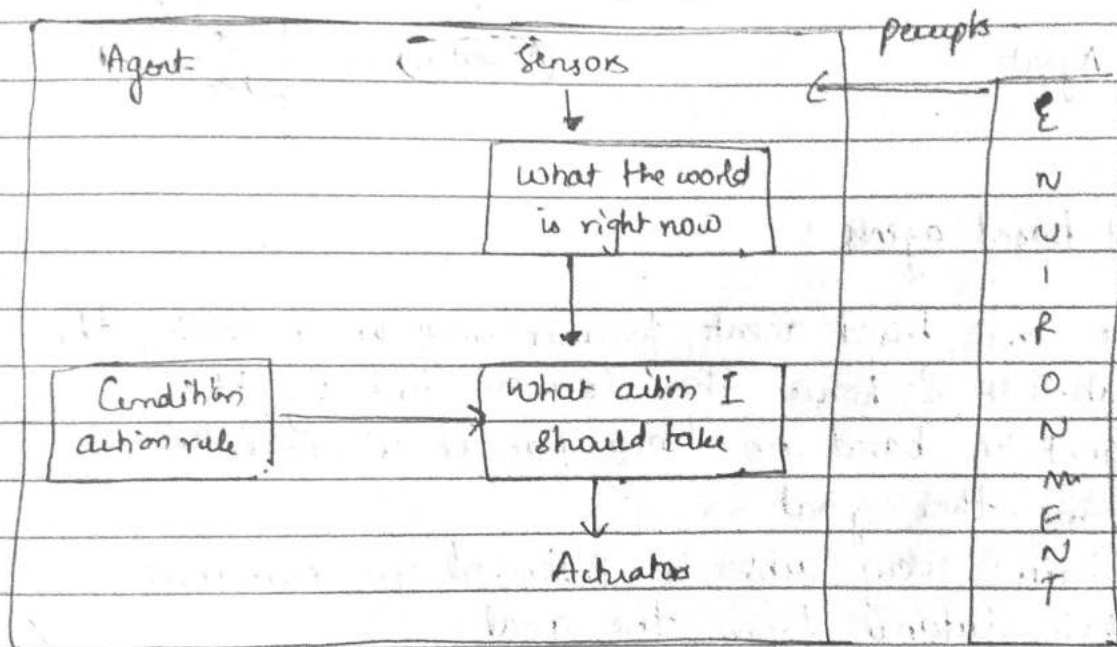 percepts
Agent
Sensors
What the world
is right now
Condition
action rule
What action I
should take
Actuators
E
N
V
I
R
O
N
M
E
N
T